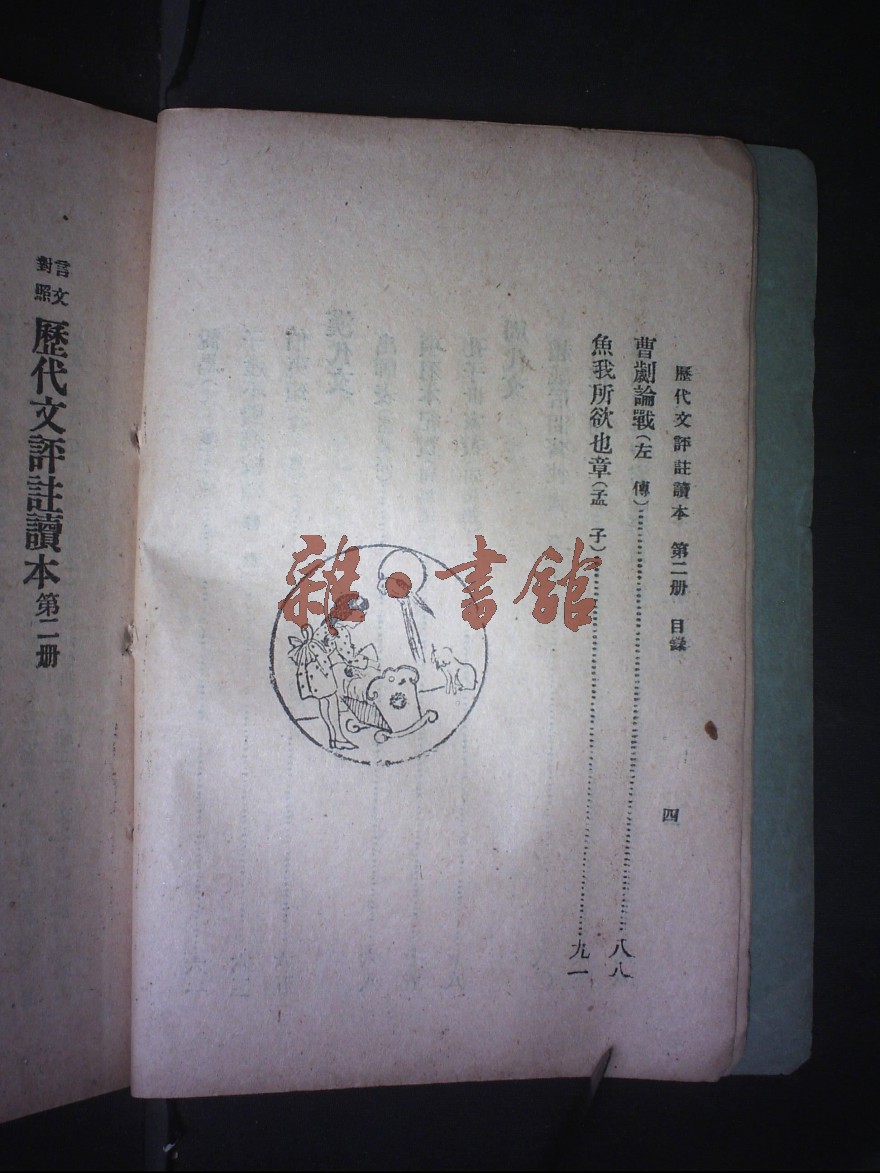 歷代文評註讀本 第二册 目錄 四
曹劌論戰(左傳)……八八
魚我所欲也章(孟子)……九一
雜·書館
言文對照 歷代文評註讀本 第二册